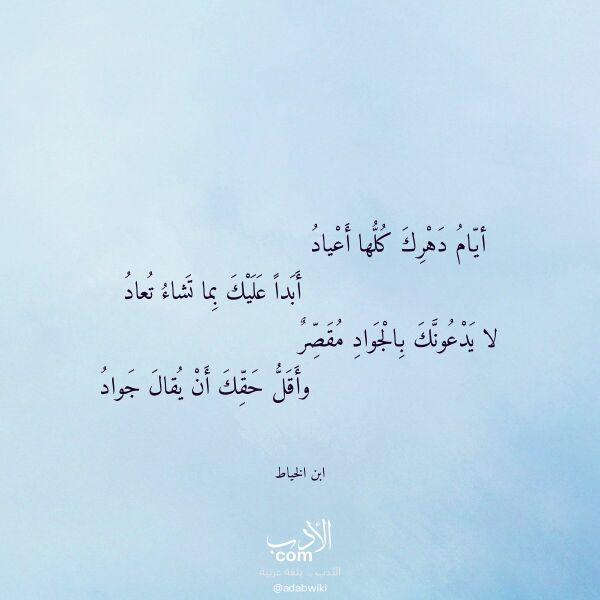 أيّامُ دَهْرِكَ كُلُّها أَعْيادُ
أَبَداً عَلَيْكَ بِما تَشاءُ تُعادُ
لا يَدْعُونَّكَ بِالْجَوادِ مُقَصِّرٌ
وأَقَلُّ حَقِّكَ أَنْ يُقالَ جَوادُ
ابن الخياط
الأدب
com
الأدب .. بلغة عربية
@adabwiki